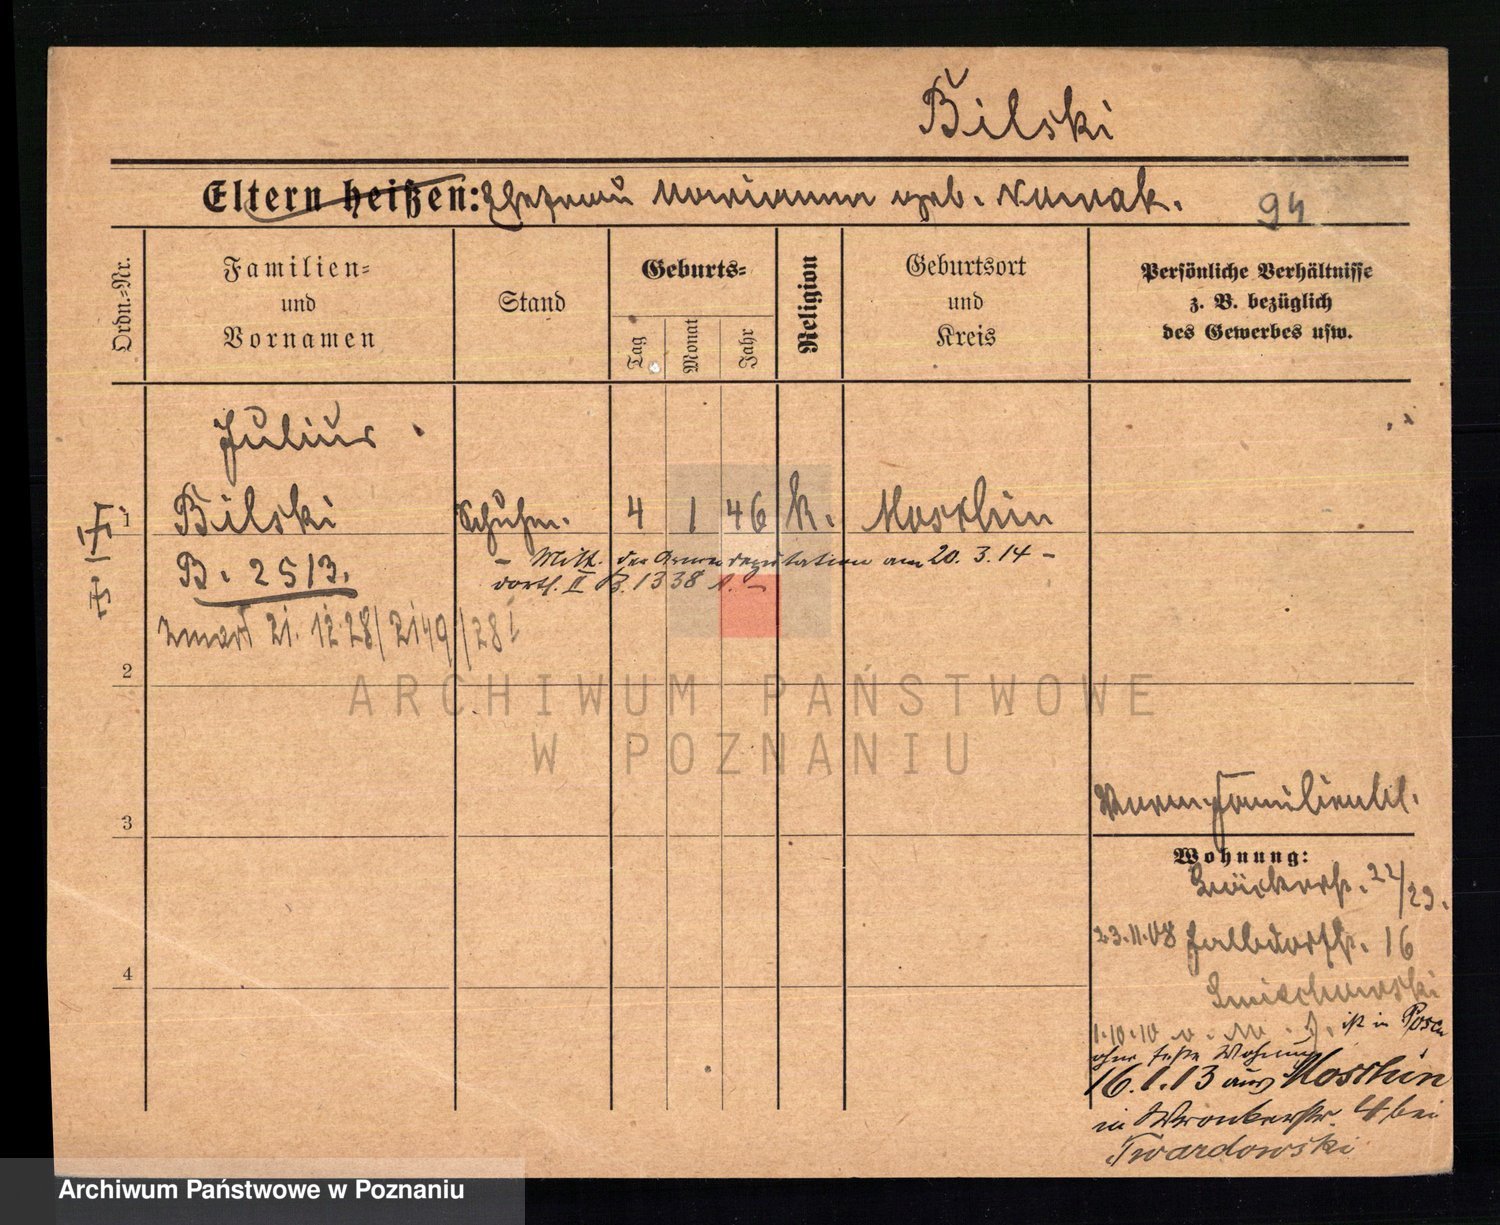 Bilski
Eltern heißen: Ehefrau Marianna geb. Nowak.
94
Ordn.-Nr.
Familien-
und
Vornamen
Stand
Geburts-
Tag
Monat
Jahr
Religion
Geburtsort
und
Kreis
Persönliche Verhältnisse
z. B. bezüglich
des Gewerbes usw.
Julius
1 Bilski Schuhm. 4 1 46 k. Moschin
B. 2513.
– Mitt. der Armendeputation am 20. 3. 14 –
dortf. II B. 1338
zmarł 21. 12 28/2149/28
2
ARCHIWUM PAŃSTWOWE
W POZNANIU
3
Familienbl.
Wohnung:
22/23.
23.11.08 Halbdorfstr. 16
4
1.10.10 ist in Posen
ohne feste Wohnung
16.1.13 aus Moschin
in Wronkerstr. 4 bei
Twardowski
Archiwum Państwowe w Poznaniu